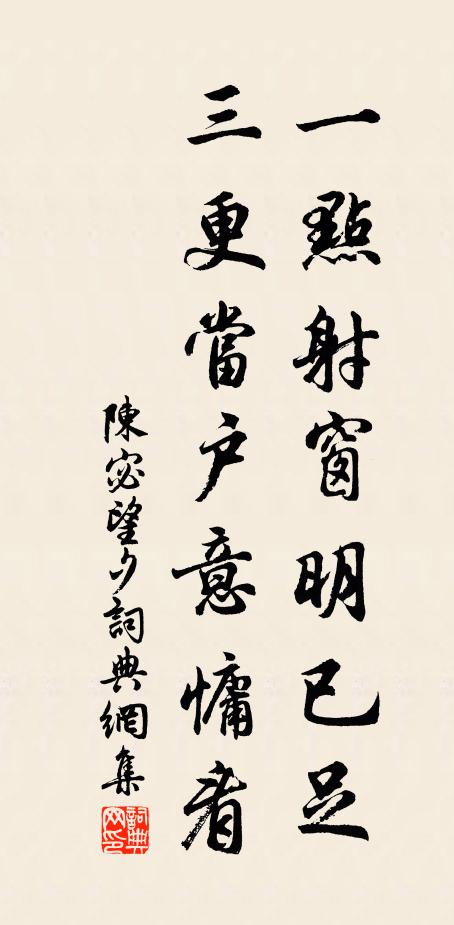 一點射窗明已足
三更當户意慵看
陳宓望夕詞典網集
詞典網印